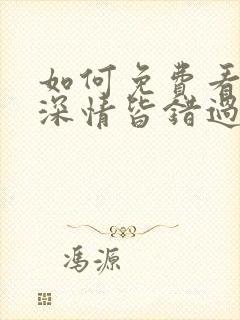 如何免費看
深情皆錯過
馮源